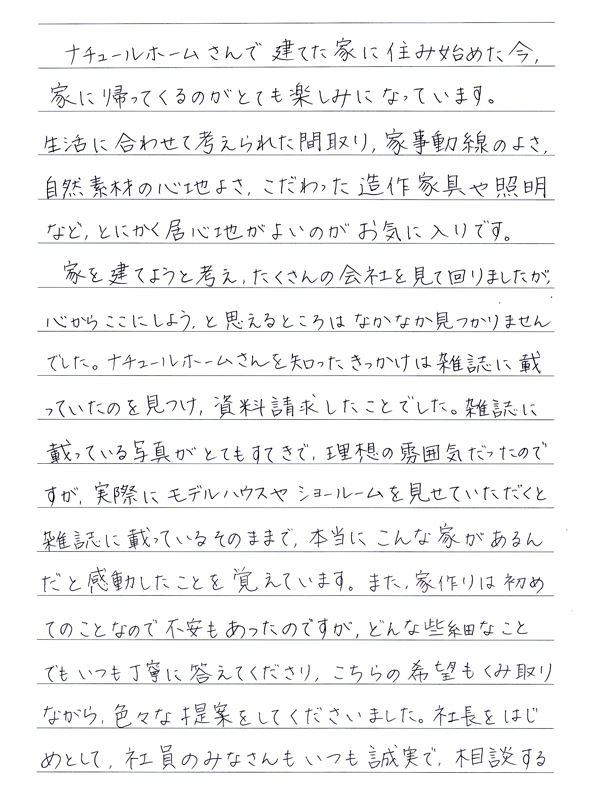 ナチュールホームさんで建てた家に住み始めた今,
家に帰ってくるのがとても楽しみになっています。
生活に合わせて考えられた間取り,家事動線のよさ,
自然素材の心地よさ,こだわった造作家具や照明
など,とにかく居心地がよいのがお気に入りです。
家を建てようと考え,たくさんの会社を見て回りましたが,
心からここにしよう,と思えるところはなかなか見つかりません
でした。ナチュールホームさんを知ったきっかけは雑誌に載
っていたのを見つけ,資料請求したことでした。雑誌に
載っている写真がとてもすてきで,理想の雰囲気だったので
すが,実際にモデルハウスやショールームを見せていただくと
雑誌に載っているそのままで,本当にこんな家があるん
だと感動したことを覚えています。また,家作りは初め
てのことなので不安もあったのですが,どんな些細なこと
でもいつも丁寧に答えてくださり,こちらの希望もくみ取り
ながら,色々な提案をしてくださいました。社長をはじ
めとして,社員のみなさんもいつも誠実で,相談する